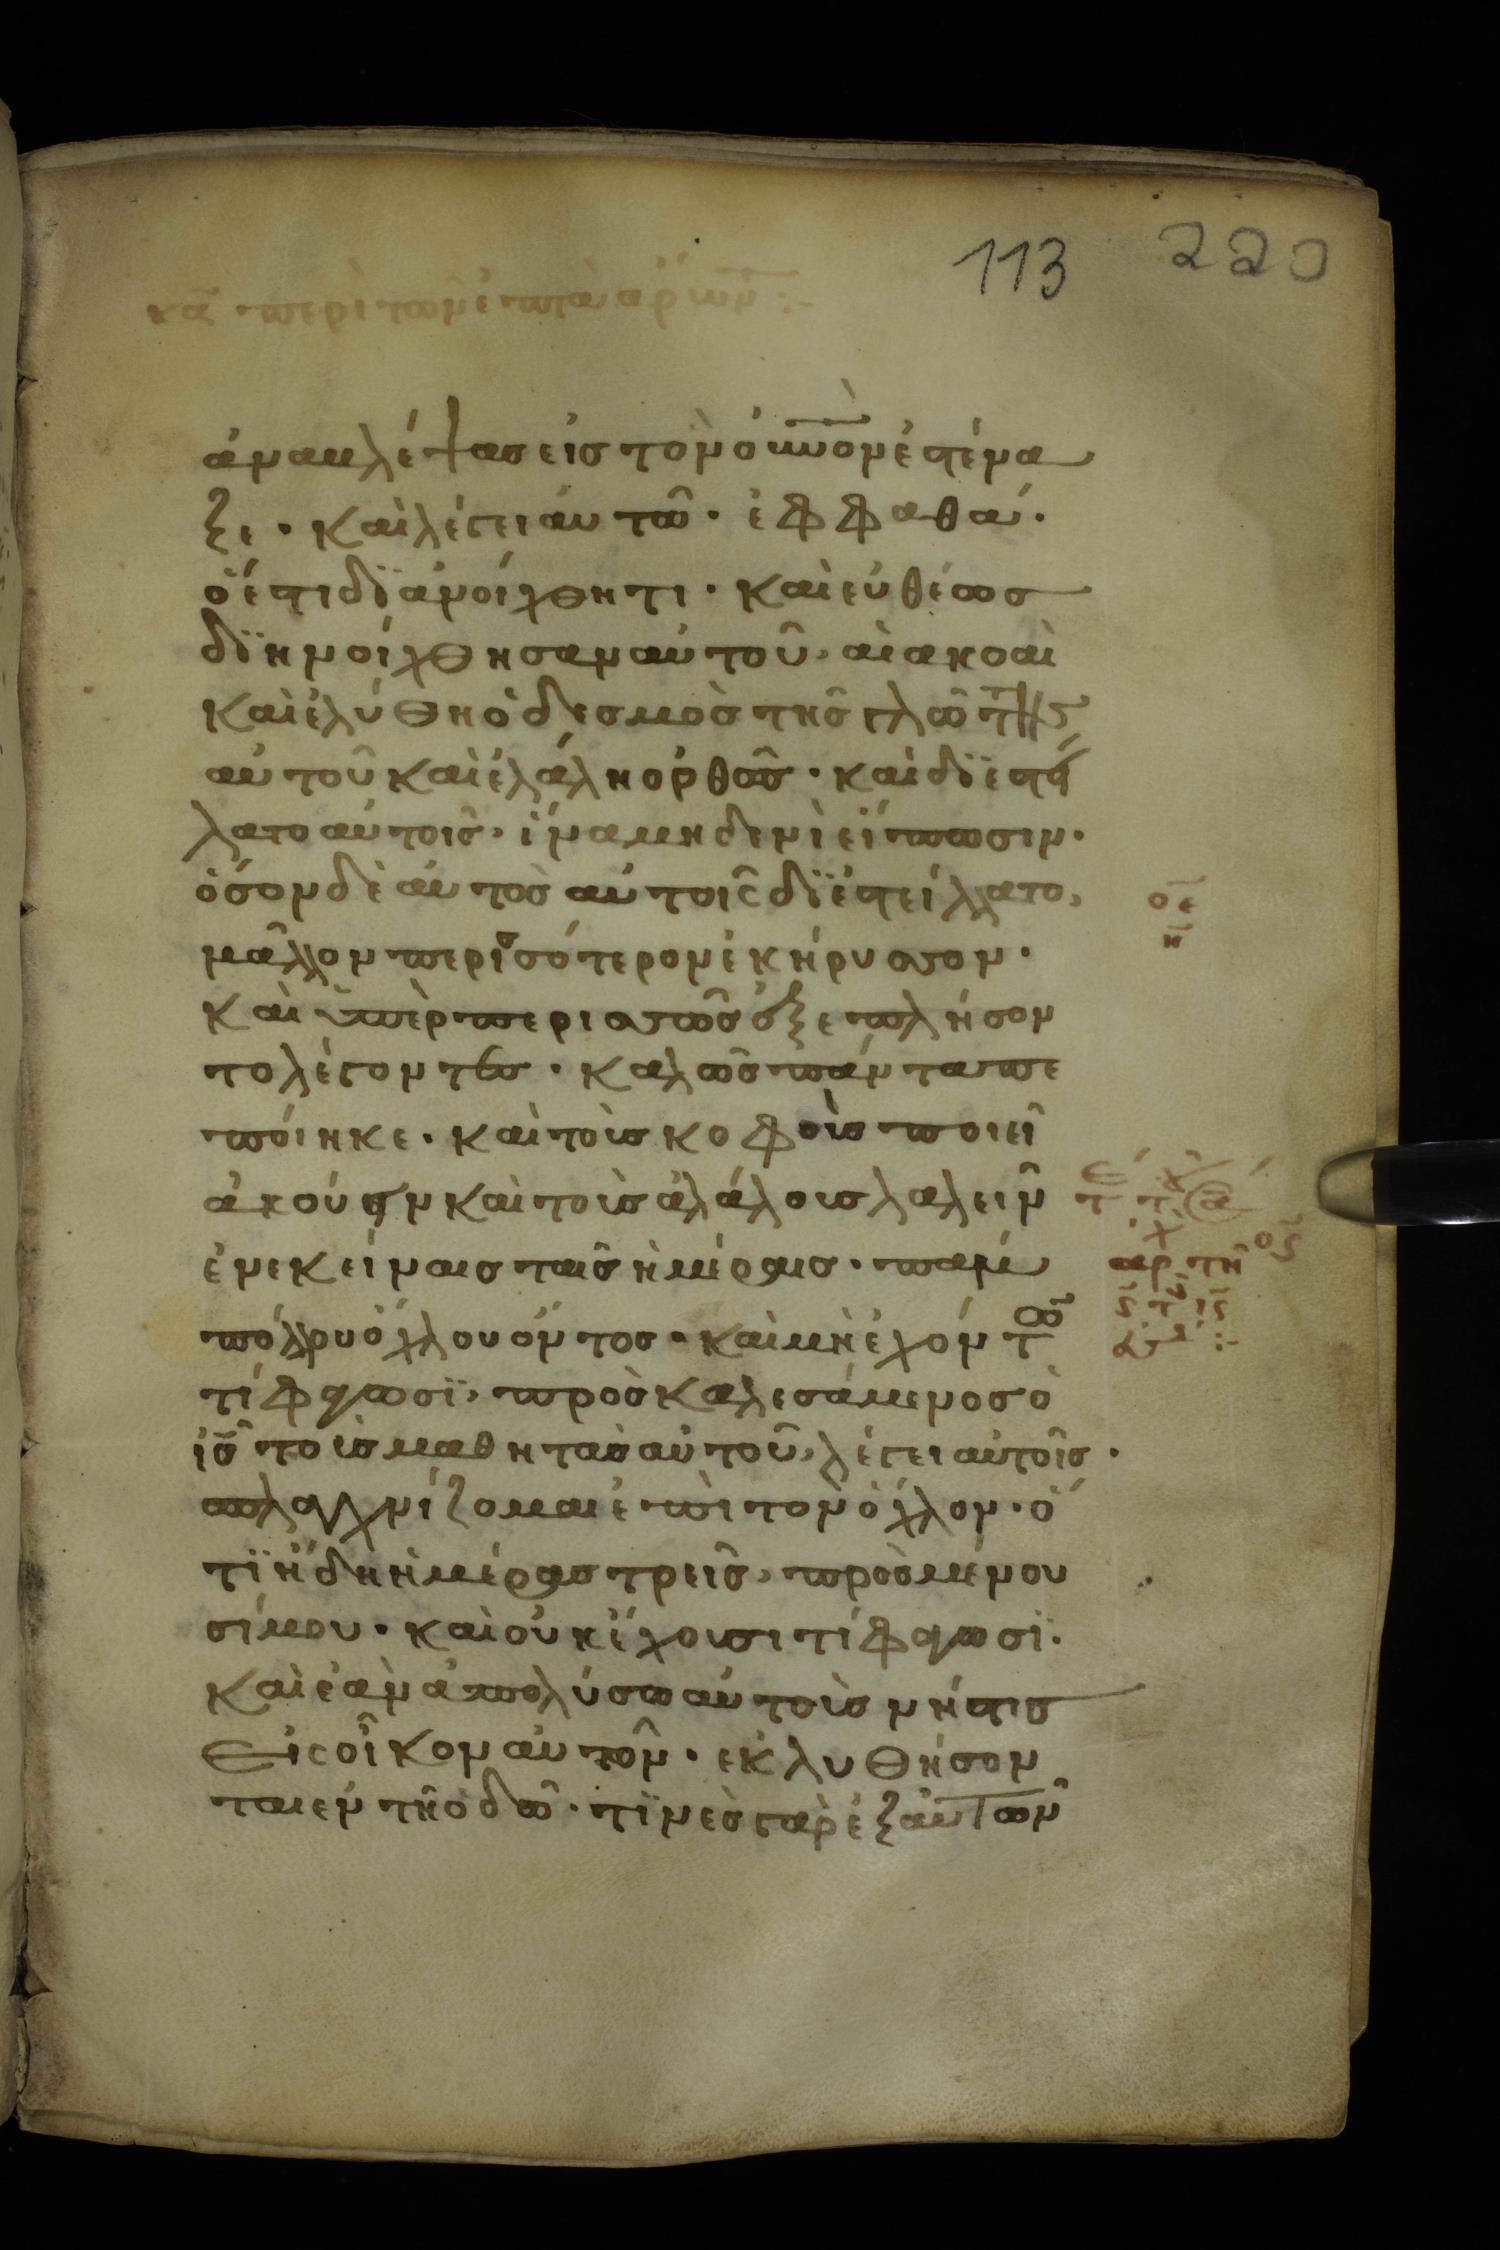 113 220
κα περὶ τῶν ἑπτὰ ἄρτων :-
ἀναβλέψας εἰς τὸν ο̅υ̅ν̅ο̅ν̅ ἐστένα
ξε · καὶ λέγει αὐτῶ · ἐφφαθά ·
ὅ ἐστι διανοίχθητι · καὶ εὐθέως
διηνοίχθησαν αὐτοῦ, αἱ ἀκοαὶ
καὶ ἐλύθη ὁ δεσμὸς τῆς γλώττης
αὐτοῦ καὶ ἐλάλη ὀρθῶς · καὶ διεστεί
λατο αὐτοῖς, ἵνα μηδενὶ εἴπωσιν ·
ὅσον δὲ αὐτὸς αὐτοῖς διεστείλλατο,
μᾶλλον περισσότερον ἐκήρυσσον ·
καὶ ὑπὲρπερισσῶς ἐξεπλήσσον
το λέγοντες · καλῶς πάντα πε
πόιηκε · καὶ τοὺς κοφοὺς ποιεῖ
ἀκούειν καὶ τοὺς ἀλάλους λαλεῖν
ἐν ἐκείναις ταῖς ἡμέραις · παμ
πόλλου ὄχλου ὄντος · καὶ μὴ ἐχόντων
τί φάγωσϊ, προσκαλεσάμενος ὁ
ι̅ς̅ τοὺς μαθητὰς αὐτοῦ, λέγει αὐτοῖς ·
σπλαγχνίζομαι ἐπὶ τὸν ὄχλον · ὅ
τϊ ἤδη ἡμέρας τρεῖς, προσμένου
σί μου · καὶ οὐκ ἔχουσι τί φάγωσϊ ·
καὶ ἐὰν ἀπολύσω αὐτοὺς νήστις
εἰς οἶκον αὐτον · ἐκλυθήσον
ται ἐν τῆ ὁδῶ · τϊνὲς γὰρ ἐξ αὐτῶν
οε
η
ος